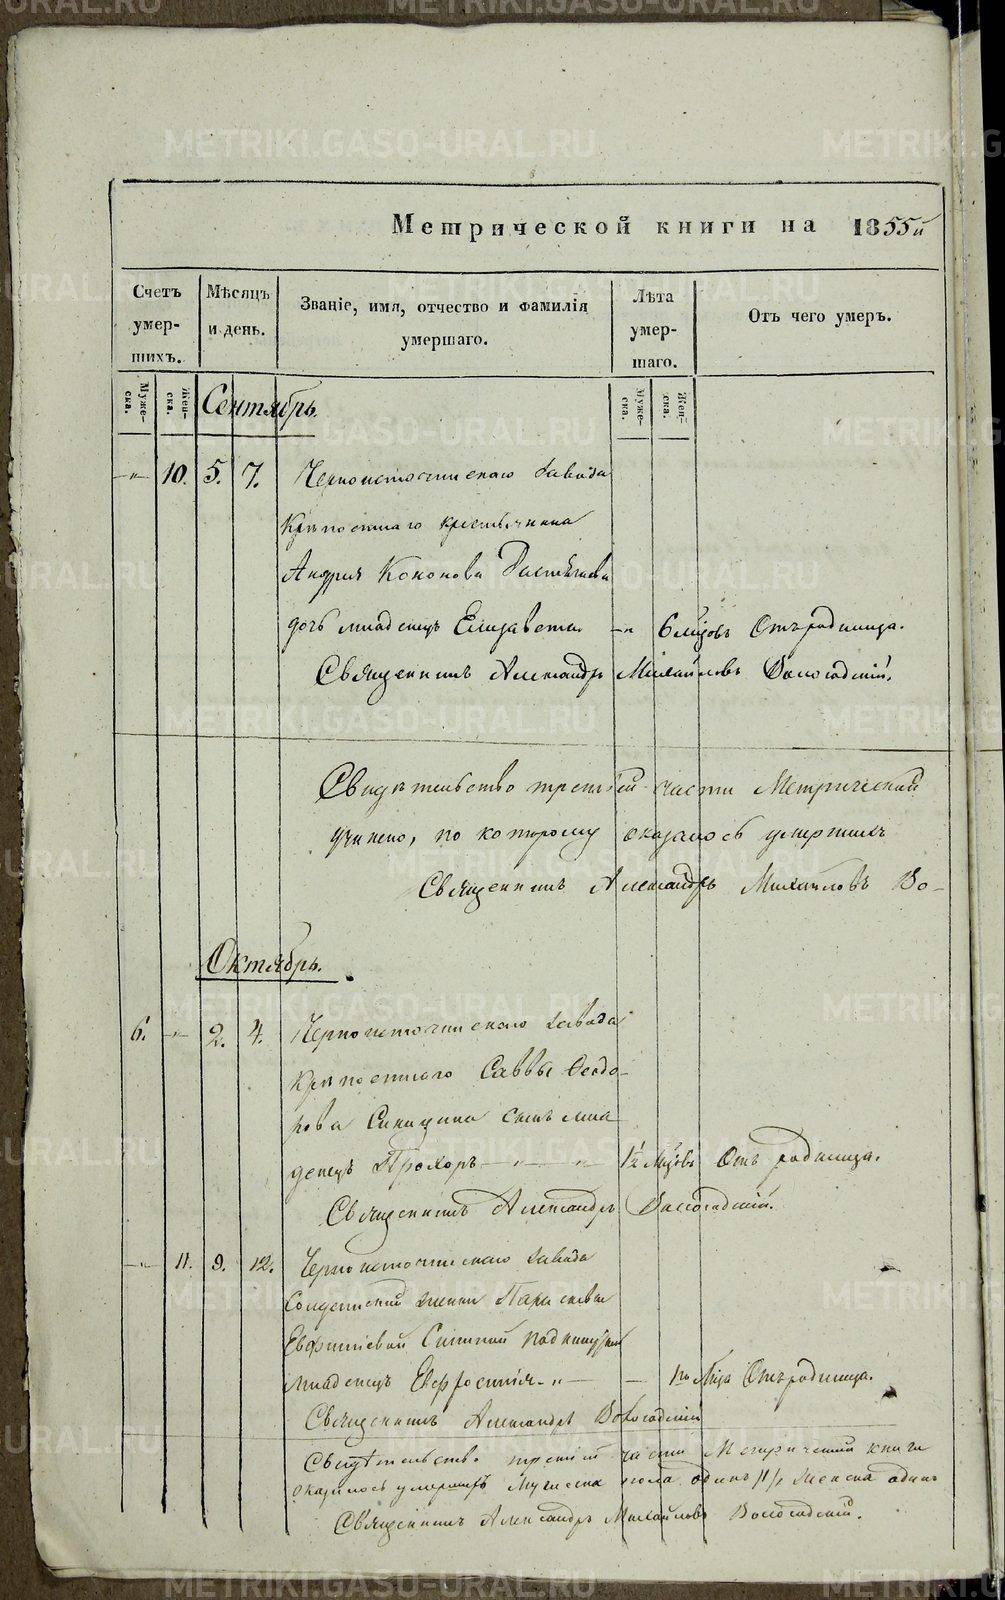 Метрической книги на 1855й
Счетъ умер- шихъ.
Мѣсяцъ и день.
Званіе, имя, отчество и фамилія умершаго.
Лѣта умер- шаго.
Отъ чего умеръ.
Муже- ска.
Жен- ска.
Сентябрь.
Муже- ска.
Жен- ска.
-"- 10. 5. 7. Черноисточинскаго завода
Крѣпостнаго крестьянина
Андрея Кононова
дочь младенецъ Елизавета. -"- 6 мѣсцовъ Отъ родимца.
Священникъ Александръ Михайловъ Вологодскій.
Свидѣтельство третьей части Метрической
учинено, по которому оказалось умершихъ
Священникъ Александръ Михайловъ Во-
Октябрь.
6. -"- 2. 4. Черноисточинскаго завода
Крѣпостнаго Саввы Ѳеодо-
рова сынъ мла
денецъ Прохоръ -"- -"- 1½ мѣсцовъ Отъ родимца.
Священникъ Александръ Вологодскій.
-"- 11. 9. 12. Черноисточинскаго завода
Солдатской жены Парасковьи
младенецъ Евфросинія -"- - Отъ родимца.
Священникъ Александръ Вологодскій
Свидѣтельство третьей части Метрической книги
оказалось умершихъ Мужеска пола одинъ Женска одинъ
Священникъ Александръ Михайловъ Вологодскій.
METRIKI.GASO-URAL.RU